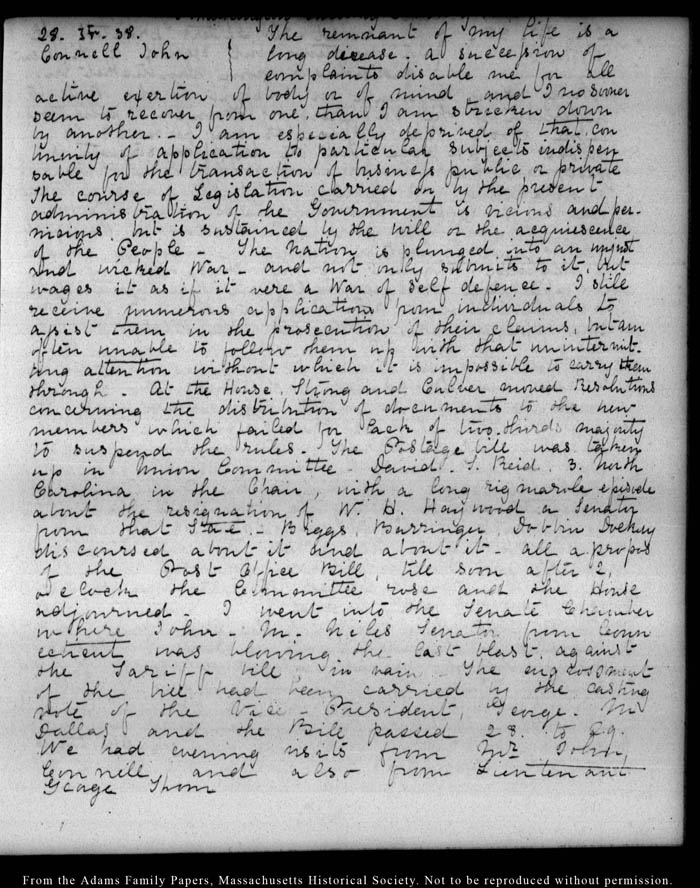 28. IV. 38. The remnant of my life is a
Connell John long disease: a succession of
complaints disable me for all
active exertion of body or of mind and I no sooner
seem to recover from one, than I am stricken down
by another. – I am especially deprived of that con
tinuity of application to particular subjects indispen
sable for the transaction of business public or private
The course of Legislation carried on by the present
administration of the Government is vicious and per-
nicious but is sustained by the will or the acquiescence
of the People – The Nation is plunged into an unjust
and wicked War – and not only submits to it, but
wages it as if it were a War of self defence. I still
receive numerous applications from individuals to
assist them in the prosecution of their claims, but am
often unable to follow them up with that unintermit-
ting attention without which it is impossible to carry them
through. At the House, Strong and Culver moved Resolutions
concerning the distribution of documents to the new
members which failed for lack of two-thirds majority
to suspend the rules. The Postage bill was taken
up in Union Committee – David. S. Reid. 3. North
Carolina in the Chair, with a long rigmarole episode
about the resignation of W. H. Haywood a Senator
from that State. – Biggs, Barringer, Dobbin Dockery
discoursed about it and about it – all apropos
of the Post Office Bill, till soon after 2,
oclock the Committee rose and the House
adjourned – I went into the Senate Chamber
where John. M. Niles Senator from Conn
ecticut was blowing the last blast against
the Tariff bill, in vain – The engrossment
of the bill had been carried by the casting
vote of the Vice-President, George. M.
Dallas and the Bill passed 28. to 27.
We had evening visits from Mr. John,
Connell and also from Lieutenant
George Thom
From the Adams Family Papers, Massachusetts Historical Society. Not to be reproduced without permission.